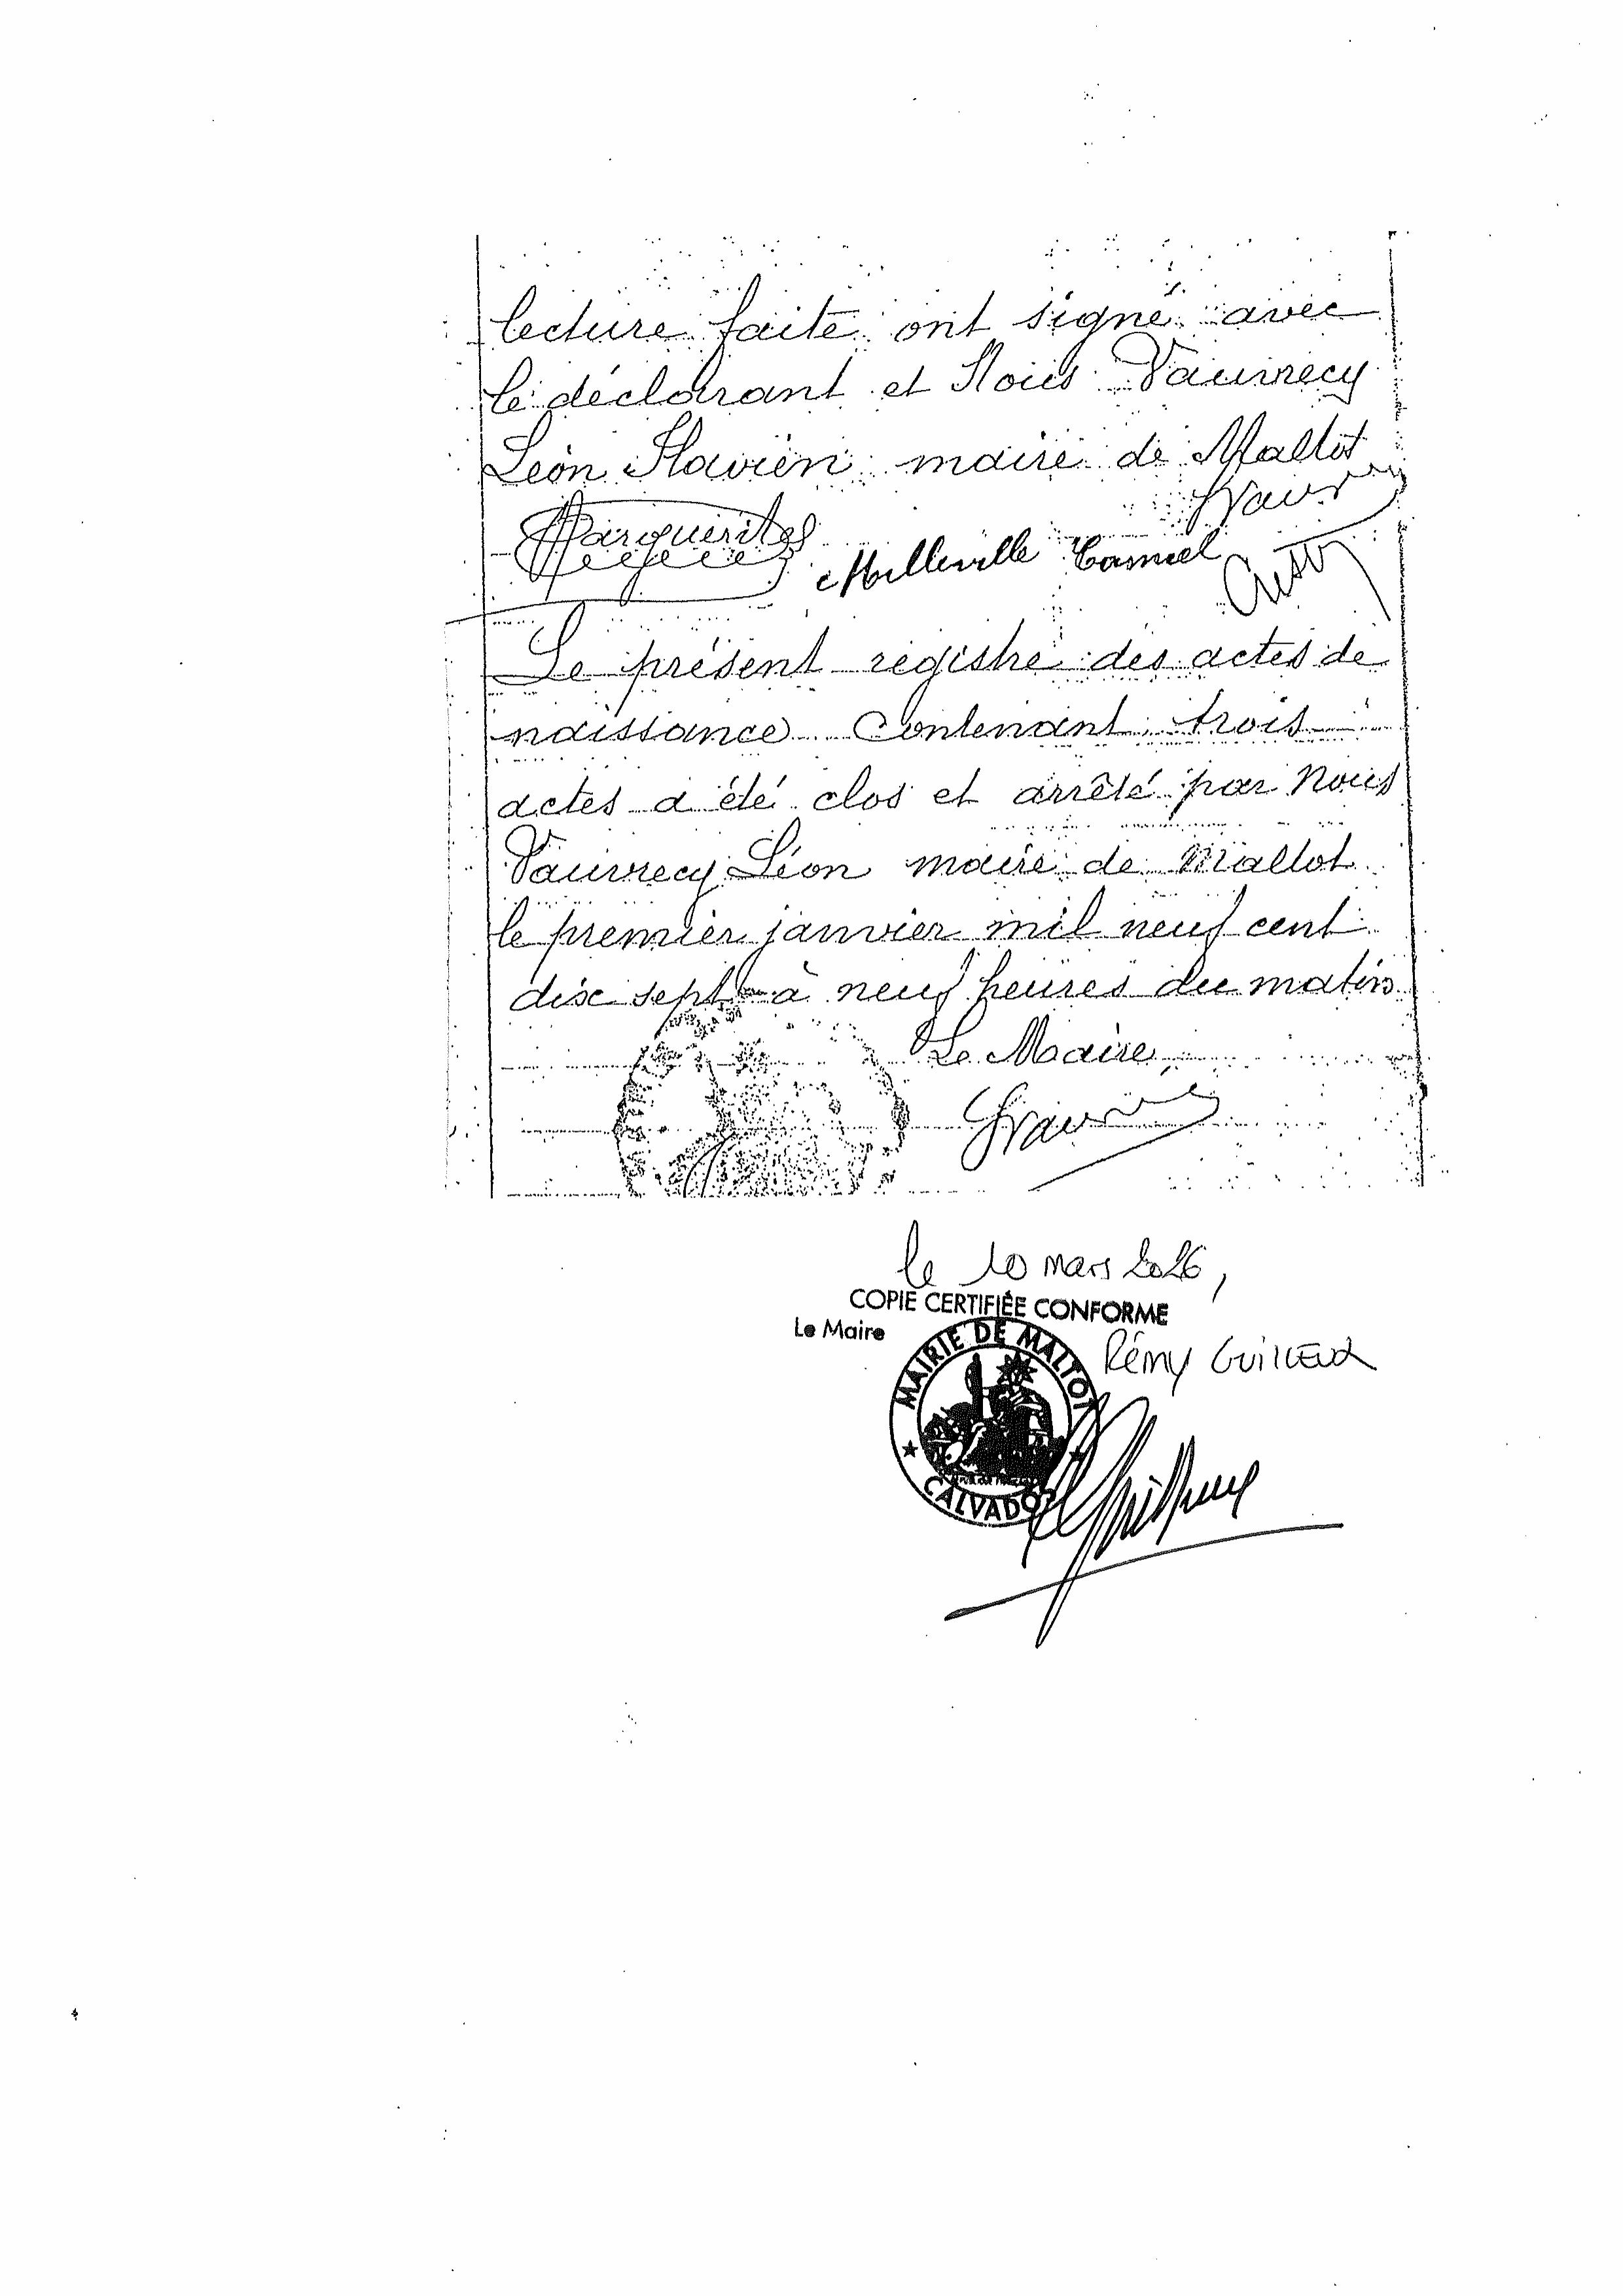 lecture faite ont signé avec
le déclarant et Nous Vauvrecy
Léon Flavien maire de Maltot
Marguerite
Milleville Camuel
Le présent registre des actes de
naissance Contenant trois
actes a été clos et arrêté par Nous
Vauvrecy Léon maire de Maltot
le premier janvier mil neuf cent
dix sept à neuf heures du matin
Le Maire
le 10 mars 2026,
COPIE CERTIFIÉE CONFORME
Le Maire
MAIRIE DE MALTOT
Rémy GUILLEUX
CALVADOS